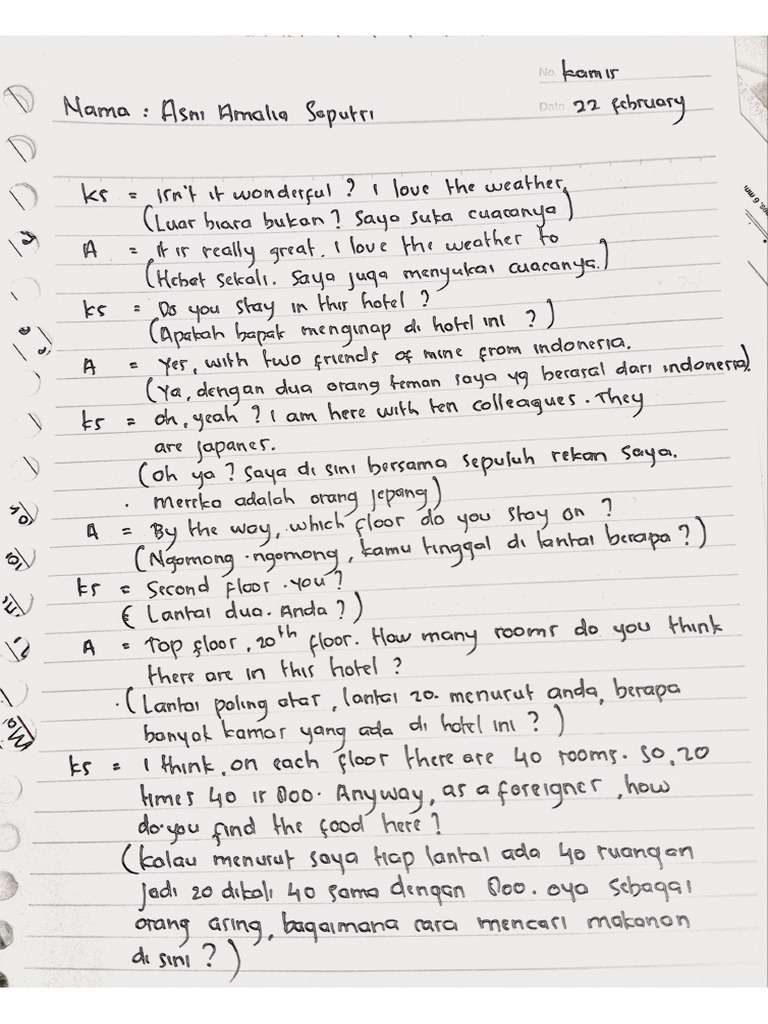 No. kamis
Nama : Asni Amalia Saputri
Date 22 february
ks = Isn't it wonderful ? I love the weather.
(Luar biasa bukan ? Saya suka cuacanya)
A = It is really great. I love the weather to
(Hebat sekali. Saya juga menyukai cuacanya.)
ks = Do you stay in this hotel ?
(Apakah bapak menginap di hotel ini ?)
A = Yes, with two friends of mine from indonesia.
(Ya, dengan dua orang teman saya yg berasal dari indonesia).
ks = Oh, yeah ? I am here with ten colleagues. They
are japanes.
(Oh ya ? Saya di sini bersama sepuluh rekan saya.
mereka adalah orang jepang)
A = By the way, which floor do you stay on ?
(Ngomong-ngomong, kamu tinggal di lantai berapa ?)
ks = Second floor. you ?
(Lantai dua. Anda ?)
A = Top floor, 20th floor. How many rooms do you think
there are in this hotel ?
(Lantai paling atas, lantai 20. menurut anda, berapa
banyak kamar yang ada di hotel ini ?)
ks = I think, on each floor there are 40 rooms. So, 20
times 40 is 800. Anyway, as a foreigner, how
do you find the food here ?
(kalau menurut saya tiap lantai ada 40 ruangan
jadi 20 dikali 40 sama dengan 800. oya sebagai
orang asing, bagaimana cara mencari makanan
di sini ?)